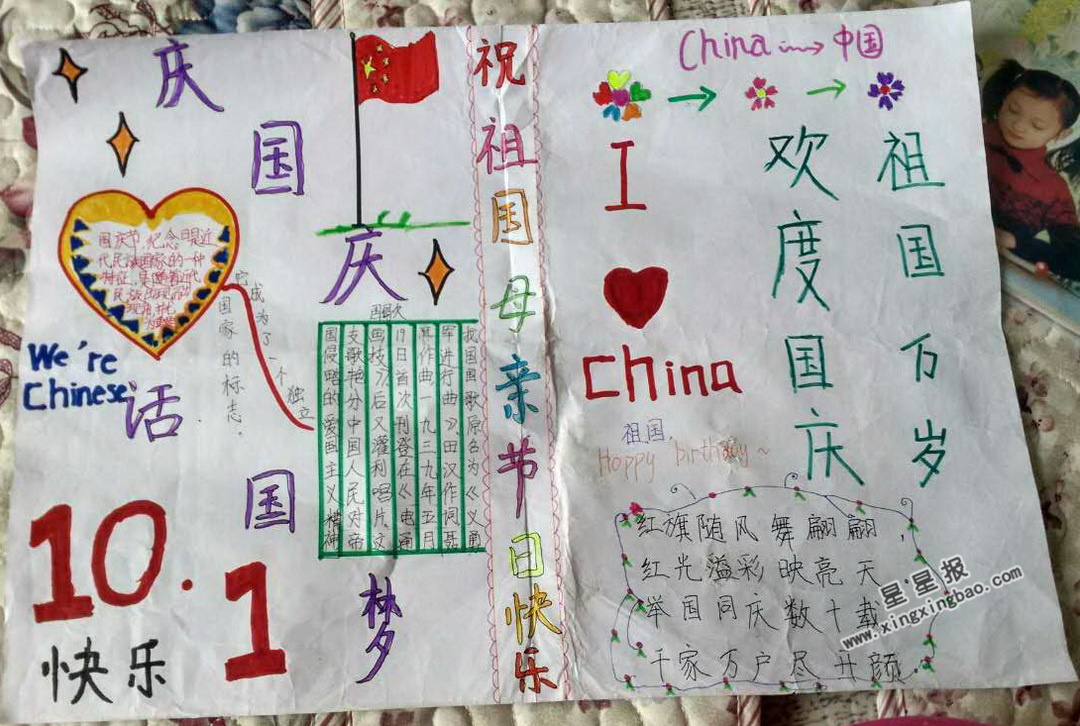 庆国庆
话国梦
We're
Chinese
国庆节,纪念日是近
代民族国家的一种
特征,是随着近代
民族出现而
它成为了一个独立
国家的标志。
国歌
我国国歌原名为《义勇
军进行曲》田汉作词聂
其作曲一九三九年五月
19日首次刊登在《电通
画技》后又灌利唱片,文
支歌艳分中国人民对帝
国侵略的爱国主义精神
10.1
快乐
祝祖国母亲节日快乐
China → 中国
I
China
祖国,
Happy birthday~
欢度国庆
祖国万岁
红旗随风舞翩翩,
红光溢彩映亮天
举国同庆数十载
千家万户尽开颜。
星星报
www.xingxingbao.com